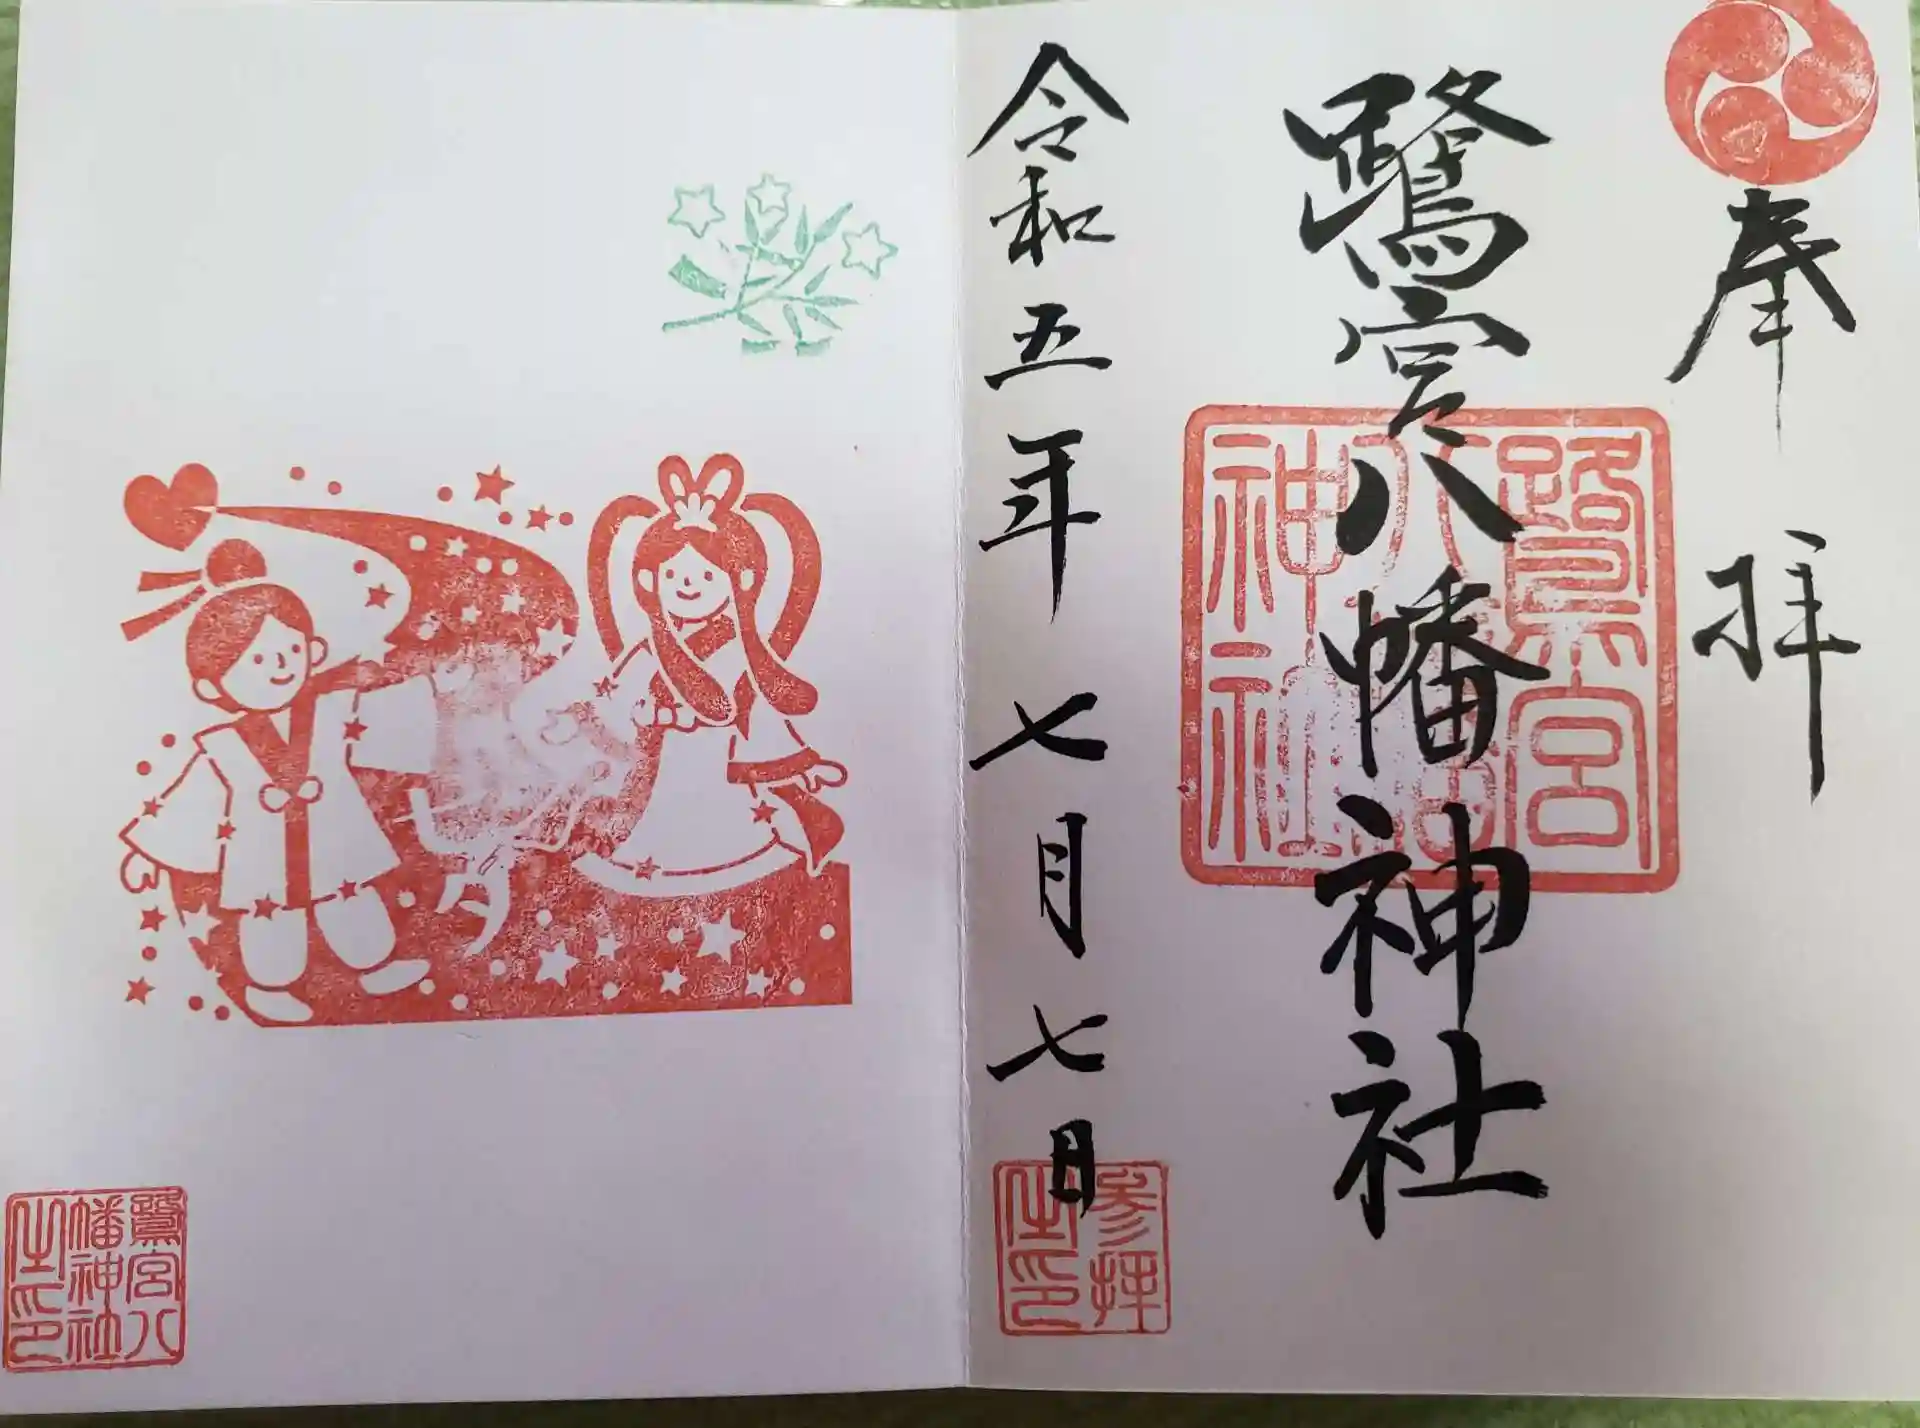 奉拝
鷺宮八幡神社
鷺宮
八幡
神社
令和五年七月七日
参拝
之印
鷺宮八
幡神社
之印